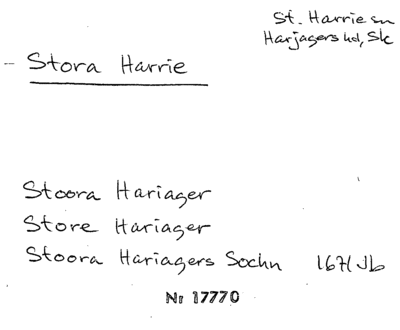 St. Harrie sn
Harjagers hd, Sk
- Stora Harrie
Stoora Hariager
Store Hariager
Stoora Hariagers Sochn 1671 Jb
Nr 17770